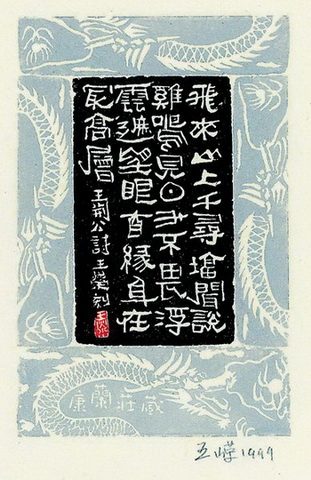 飛來山上千尋塔聞說
雞鳴見日升不畏浮
雲遮望眼自緣身在
最高層
王荊公詩王嶸刻
康蘭莊藏
王嶸1999